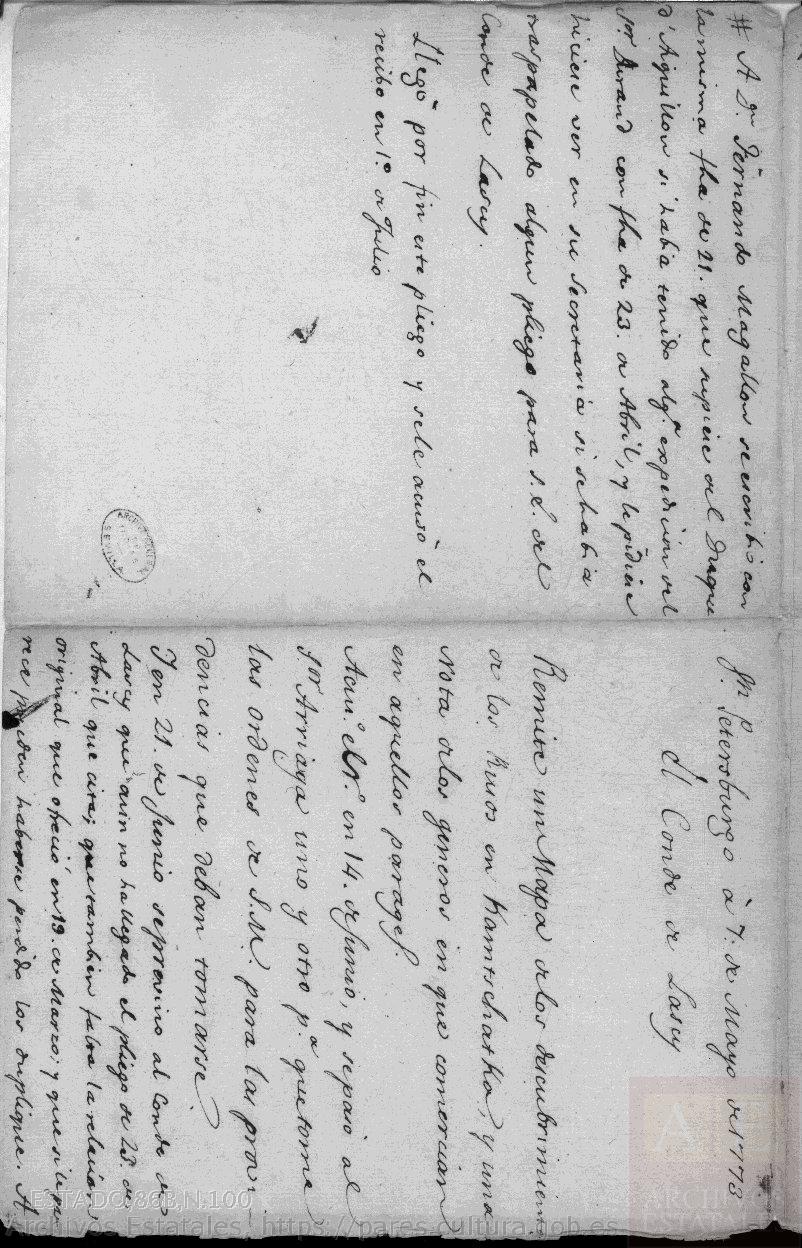 Sn. Petersburgo à 7. de Mayo de 1773
El Conde de Lascy
Remite un Mapa de los descubrimientos
de los Rusos en Kamtschatka, y una
Nota de los generos en que comercian
en aquellos parages.
en 14. de Junio, y se pasó al
Sor. Arriaga uno y otro pa. que tome
las ordenes de S.M. para las provi-
dencias que deban tomarse.
Y en 21. de Junio se previno al Conde de
Lascy que aun no ha llegado el pliego de 23. de
Abril que cita; que tambien falta la relación
original que ofreció en 19. de Marzo; y que si le pa-
rece pueden haberse perdido los duplique. #
# A Dn. Fernando Magallon se escribió con
la misma fha de 21. que supiese del Duque
d'Aiguillon si habia tenido alga. expedicion del
Sor. Durand con fha de 23. de Abril, y le pidiese
hiciese ver en su Secretaria si se habia
traspapelado algun pliego para S.E. del
Conde de Lascy.
Llegó por fin este pliego y se le acusó el
recibo en 1º. de Julio
ESTADO,86B,N.100
Archivos Estatales, https://pares.cultura.gob.es
ARCHIVOS
ESTATALES